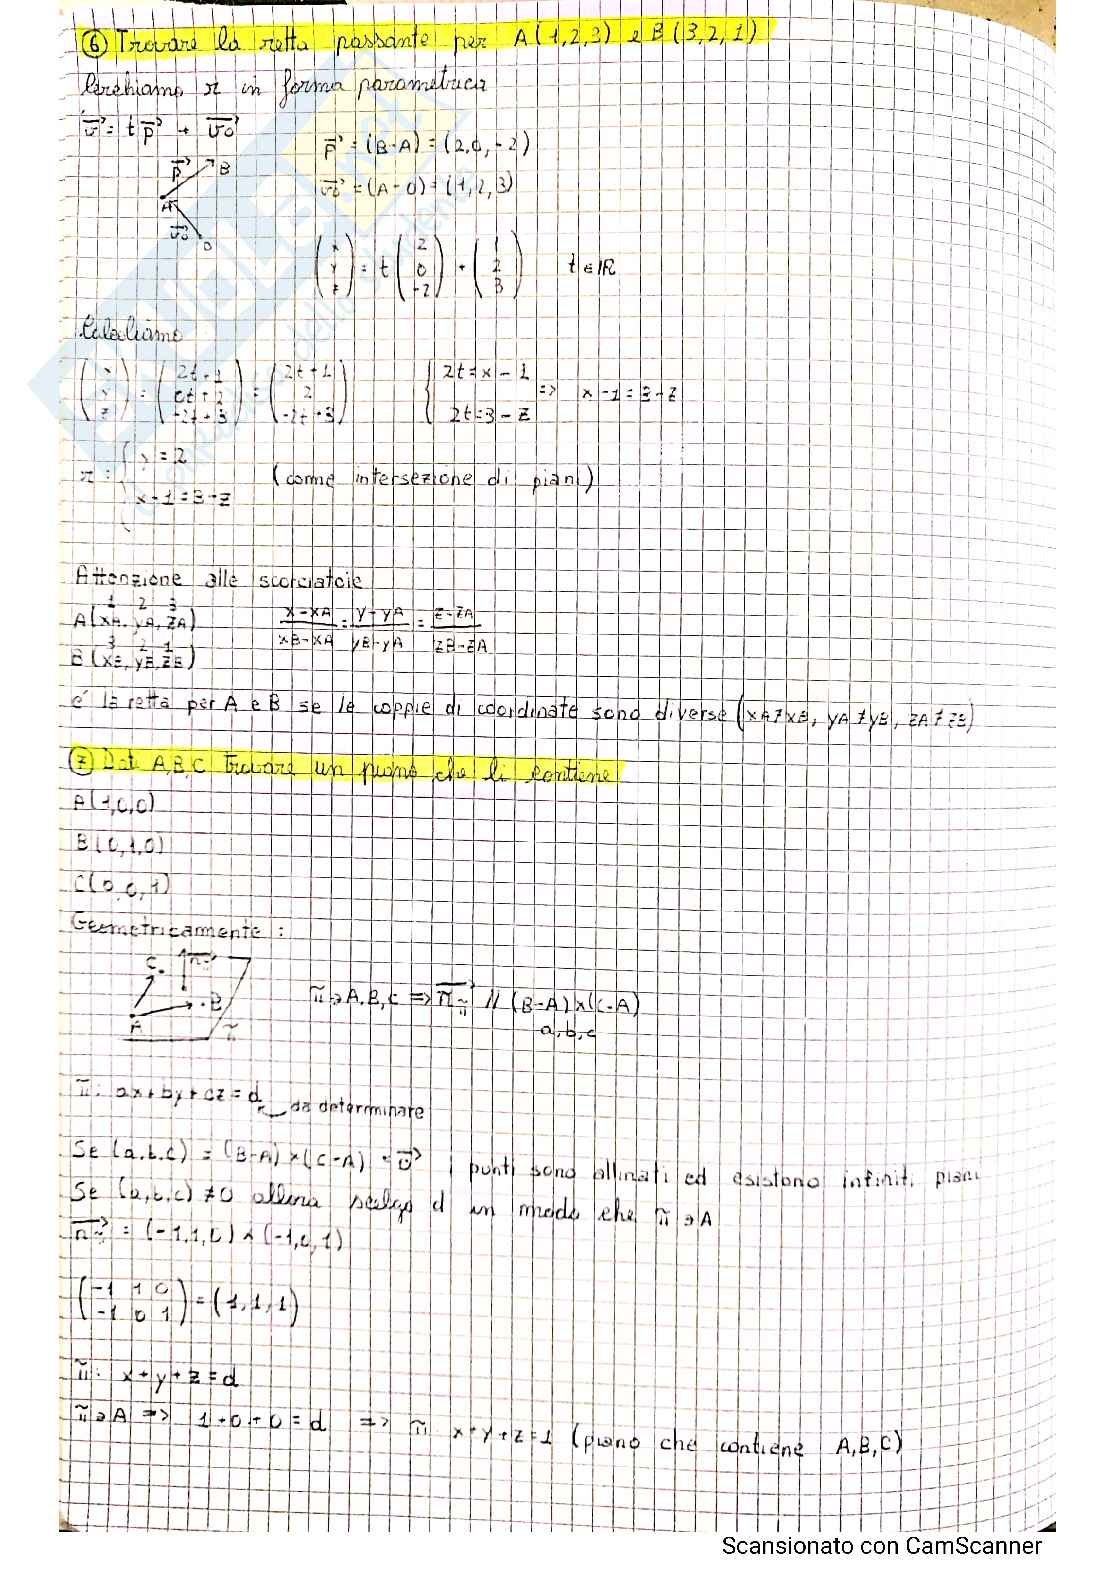 ⑥ Trovare la retta passante per A(1,2,3) e B(3,2,1)
Cerchiamo r in forma parametrica
v = t p + v0
p = (B-A) = (2,0,-2)
v0 = (A-0) = (1,2,3)
p B
A
v0 0
(x y z) = t (2 0 -2) + (1 2 3) t ∈ IR
Calcoliamo
(x y z) = (2t+1 0t+2 -2t+3) = (2t+1 2 -2t+3)
{ 2t = x-1 2t = 3-z => x-1 = 3-z
r: { y = 2 x-1 = 3-z (come intersezione di piani)
Attenzione alle scorciatoie
1 2 3
A(xA, yA, zA)
3 2 1
B(xB, yB, zB)
x-xA/xB-xA = y-yA/yB-yA = z-zA/zB-zA
é la retta per A e B se le coppie di coordinate sono diverse (xA≠xB, yA≠yB, zA≠zB)
⑦ Dati A,B,C trovare un piano che li contiene
A(1,0,0)
B(0,1,0)
C(0,0,1)
Geometricamente:
C n
B
A π
π∋A,B,C => nπ // (B-A)×(C-A)
a,b,c
π: ax+by+cz = d da determinare
Se (a,b,c) = (B-A)×(C-A) = 0 i punti sono allinati ed esistono infiniti piani
Se (a,b,c) ≠0 allora scelgo d in modo che π∋A
nπ = (-1,1,0) × (-1,0,1)
(-1 1 0 -1 0 1) = (1,1,1)
π: x+y+z = d
π∋A => 1+0+0 = d => π x+y+z=1 (piano che contiene A,B,C)
Scansionato con CamScanner